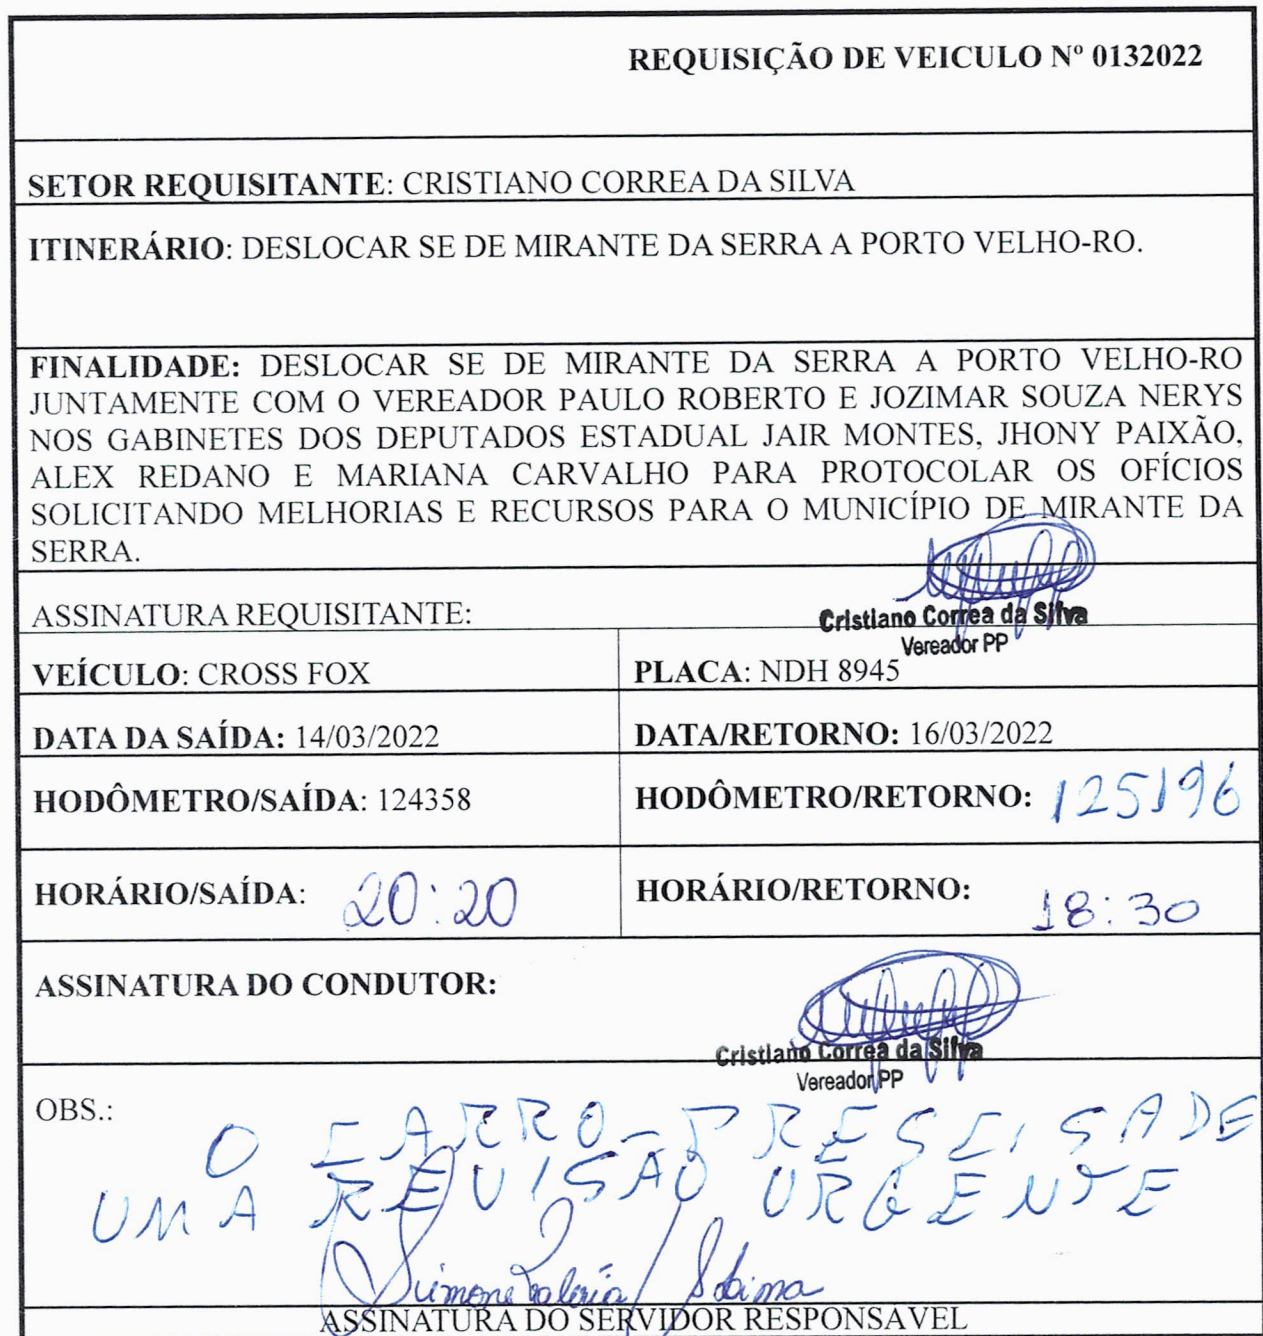 REQUISIÇÃO DE VEICULO Nº 0132022
SETOR REQUISITANTE: CRISTIANO CORREA DA SILVA
ITINERÁRIO: DESLOCAR SE DE MIRANTE DA SERRA A PORTO VELHO-RO.
FINALIDADE: DESLOCAR SE DE MIRANTE DA SERRA A PORTO VELHO-RO
JUNTAMENTE COM O VEREADOR PAULO ROBERTO E JOZIMAR SOUZA NERYS
NOS GABINETES DOS DEPUTADOS ESTADUAL JAIR MONTES, JHONY PAIXÃO,
ALEX REDANO E MARIANA CARVALHO PARA PROTOCOLAR OS OFÍCIOS
SOLICITANDO MELHORIAS E RECURSOS PARA O MUNICÍPIO DE MIRANTE DA
SERRA.
ASSINATURA REQUISITANTE:
Cristiano Correa da Silva
Vereador PP
VEÍCULO: CROSS FOX
PLACA: NDH 8945
DATA DA SAÍDA: 14/03/2022
DATA/RETORNO: 16/03/2022
HODÔMETRO/SAÍDA: 124358
HODÔMETRO/RETORNO: 125196
HORÁRIO/SAÍDA: 20:20
HORÁRIO/RETORNO: 18:30
ASSINATURA DO CONDUTOR:
Cristiano Correa da Silva
Vereador PP
OBS.:
O CARRO PRESCISA DE
UMA REVISÃO URGENTE
Simone Valeria
ASSINATURA DO SERVIDOR RESPONSAVEL